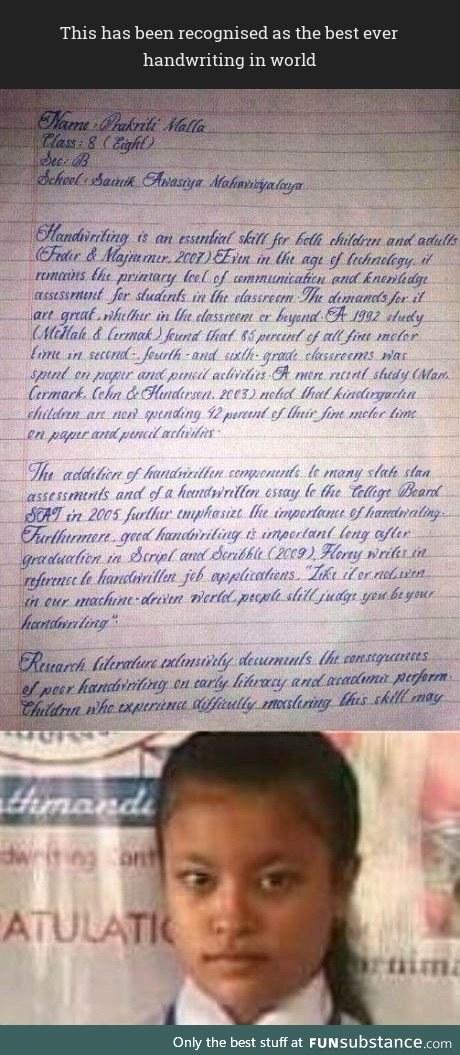 This has been recognised as the best ever
handwriting in world
Name : Prakriti Malla
Class : 8 (Eight)
Sec : B
School : Sainik Awasiya Mahavidyalaya
Handwriting is an essential skill for both children and adults
(Feder & Majnemer, 2007) Even in the age of technology, it
remains the primary tool of communication and knowledge
assessment for students in the classroom. The demands for it
are great, whether in the classroom or beyond. A 1992 study
(McHale & Cermak) found that 85 percent of all fine motor
time in second-, fourth- and sixth-grade classrooms was
spent on paper and pencil activities. A more recent study (Marr,
Cermark, Cohn & Henderson, 2003) noted that kindergarten
children are now spending 42 percent of their fine motor time
on paper and pencil activities.
The addition of handwritten components to many state stan
assessments and of a handwritten essay to the College Board
SAT in 2005 further emphasize the importance of handwriting.
Furthermore, good handwriting is important long after
graduation in Script and Scribble (2009), Florey writes in
reference to handwritten job applications, "Like it or not, even
in our machine-driven world, people still judge you be your
handwriting".
Research literature extensively documents the consequences
of poor handwriting on early literacy and academic perform.
Children who experience difficulty mastering this skill may
thmandu
dwriting Cont
ATULATIO
Only the best stuff at FUNsubstance.com